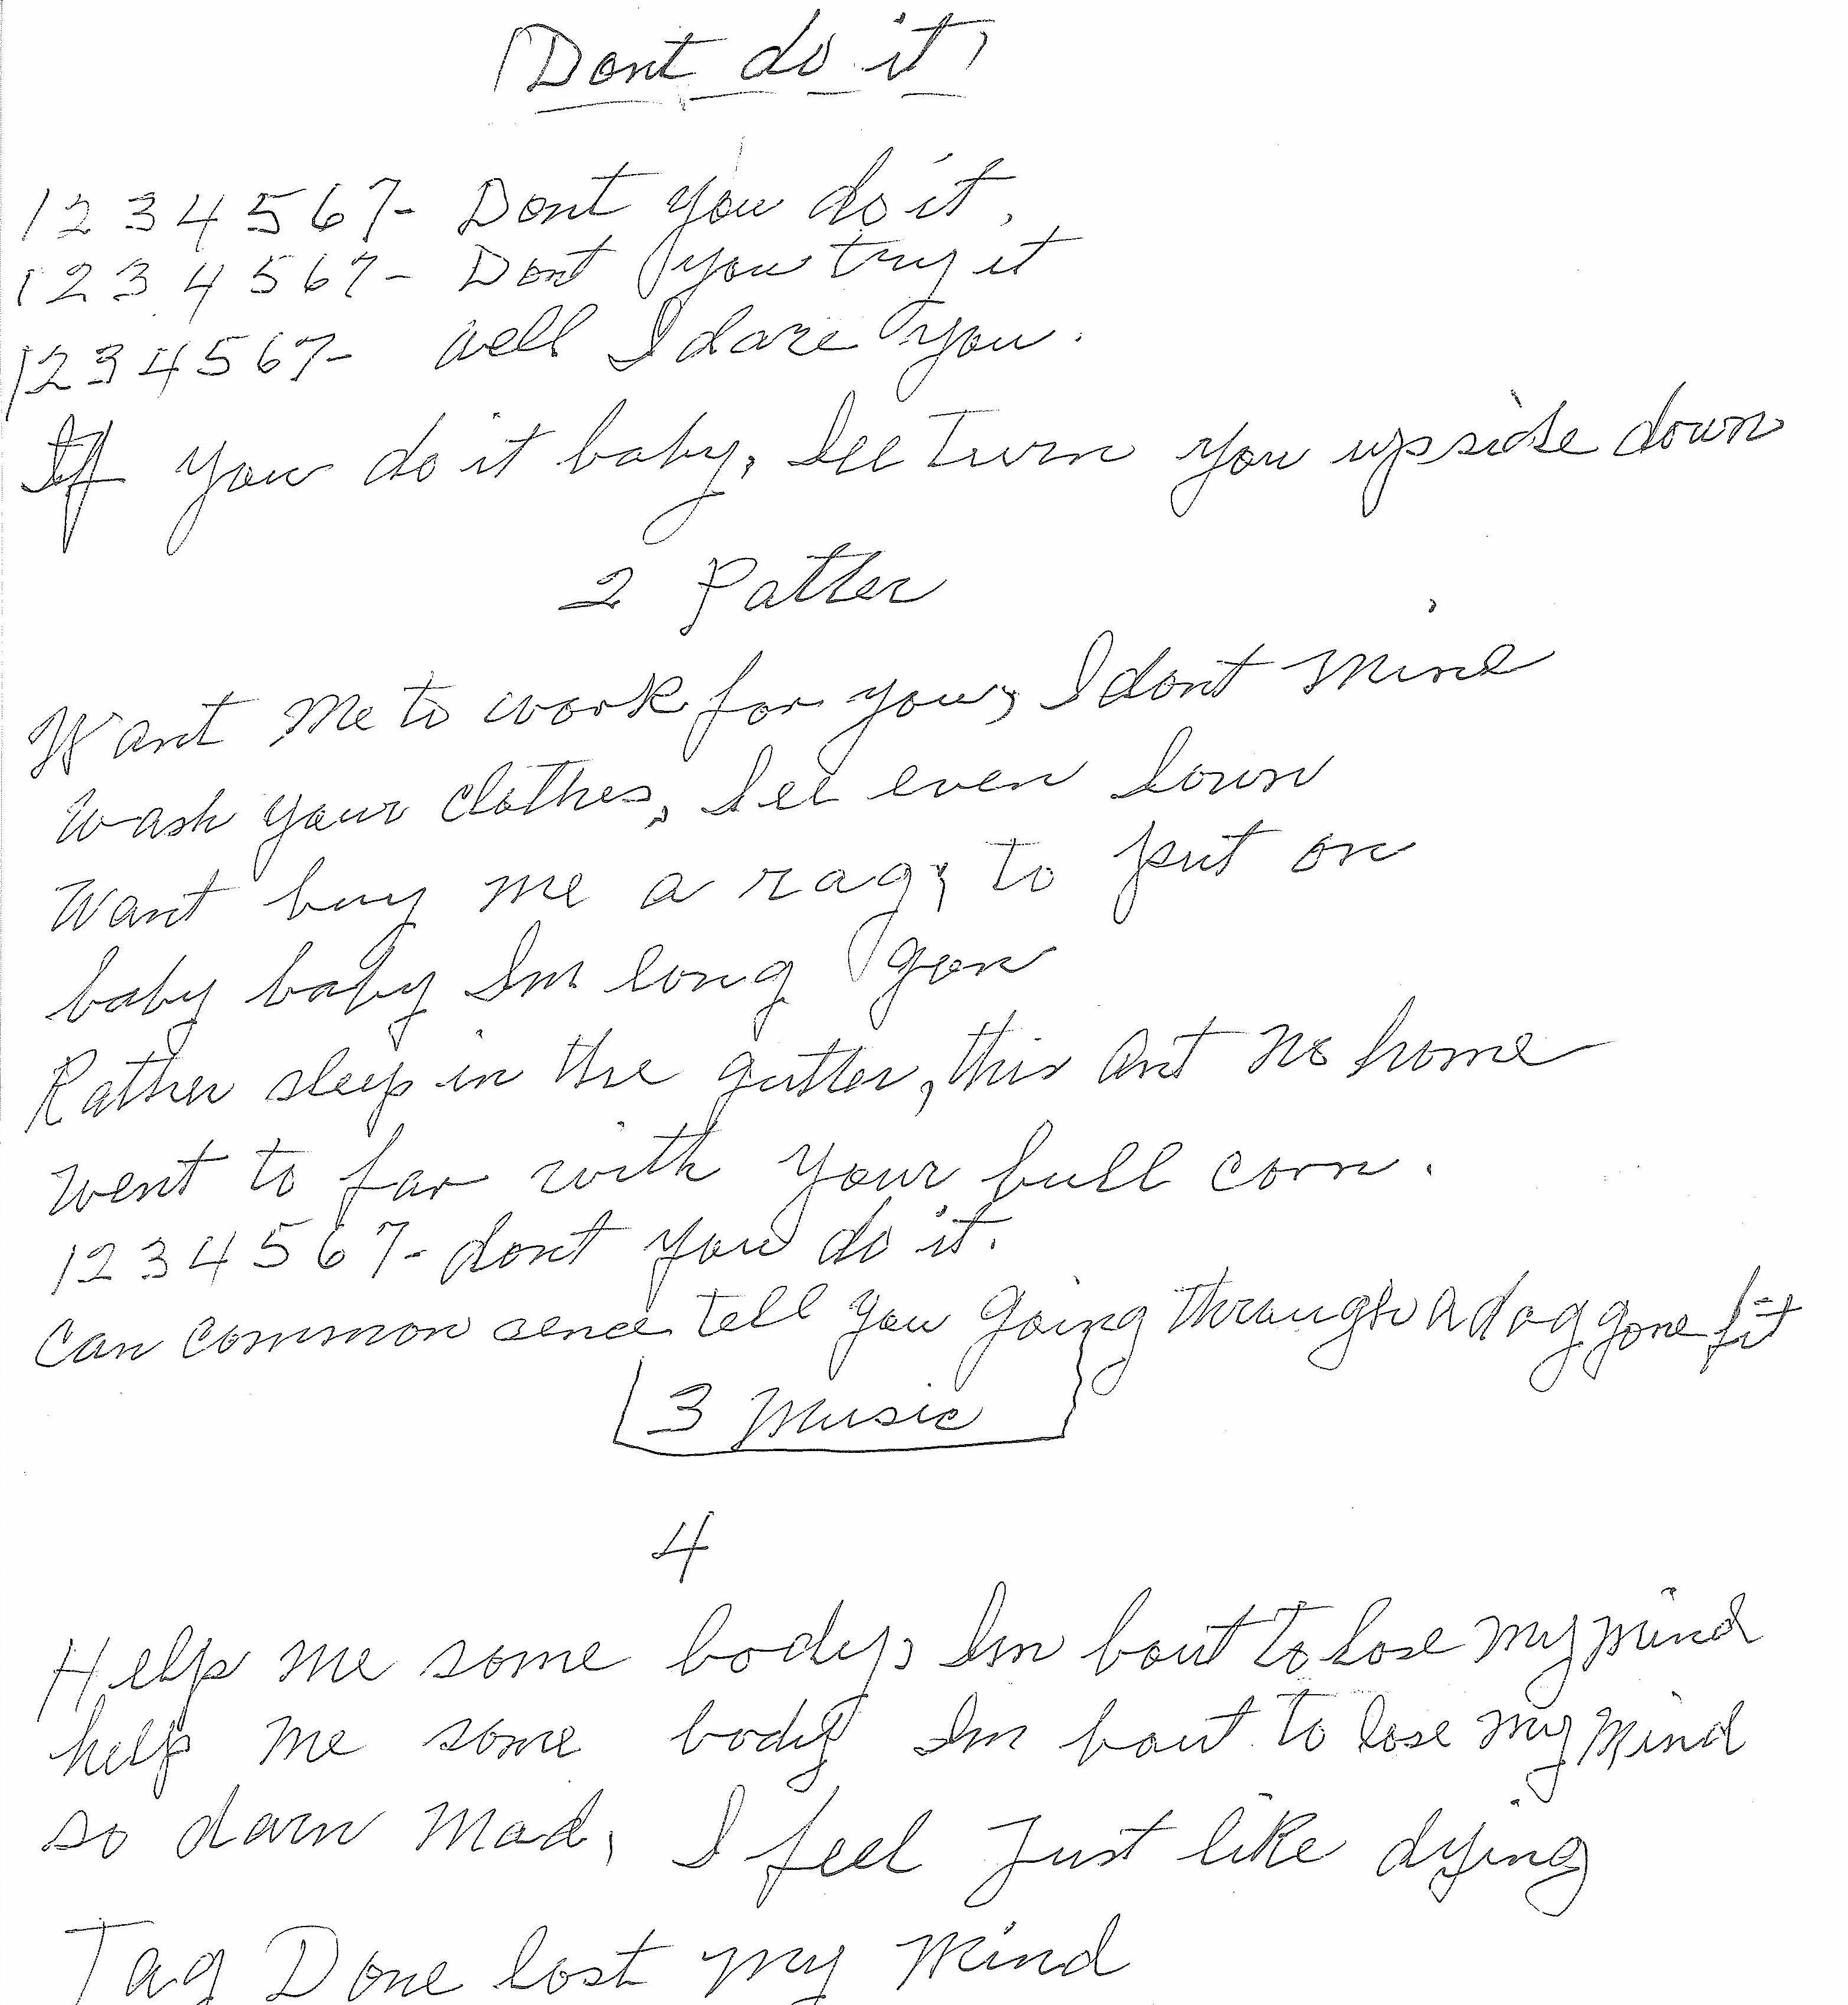 (Dont do it)
1 2 3 4 5 6 7- Dont you do it.
1 2 3 4 5 6 7- Dont you try it
1 2 3 4 5 6 7- well I dare you.
If you do it baby, Ill Turn you upside down
2 Patter
Want me to work for you, I dont mind
Wash your clothes, Ill even
Want buy me a rag, to put on
baby baby Im long gon
Rather sleep in the gutter, this ant no home
went to far with your bull corn.
1 2 3 4 5 6 7- dont you do it.
Can common sence tell you going through a dog gone fit
3 Music
4
Help me some body, Im bout to lose my mind
help me some body Im bout to lose my mind
so darn mad, I feel Just like dying
Tag Done lost my mind